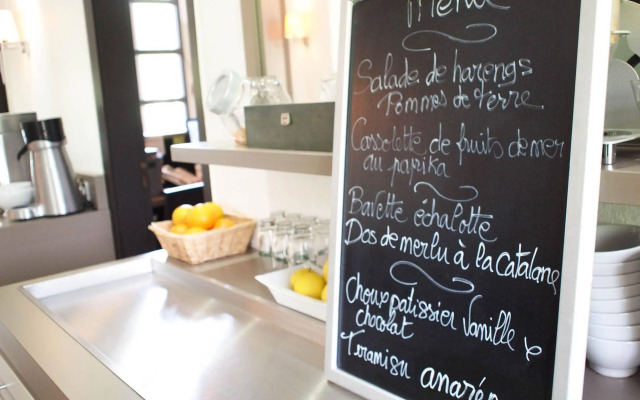 Menu
Salade de harengs
Pommes de terre
Cassolette de fruits de mer
au paprika
Bavette échalotte
Dos de merlu à la catalane
Choux patissier Vanille &
chocolat
Tiramisu